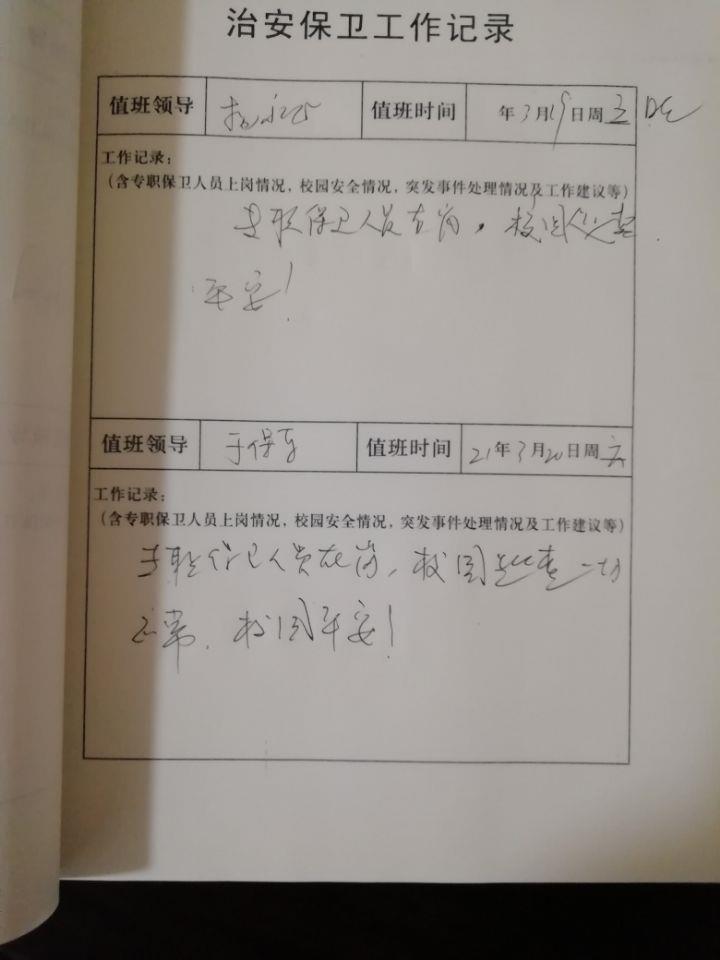 治安保卫工作记录
值班领导 值班时间 年3月19日周五
工作记录：
（含专职保卫人员上岗情况，校园安全情况，突发事件处理情况及工作建议等）
专职保卫人员在岗，校园
平安！
值班领导 于保军 值班时间 21年3月20日周六
工作记录：
（含专职保卫人员上岗情况，校园安全情况，突发事件处理情况及工作建议等）
专职保卫人员在岗，校园巡查一切
正常．校园平安！